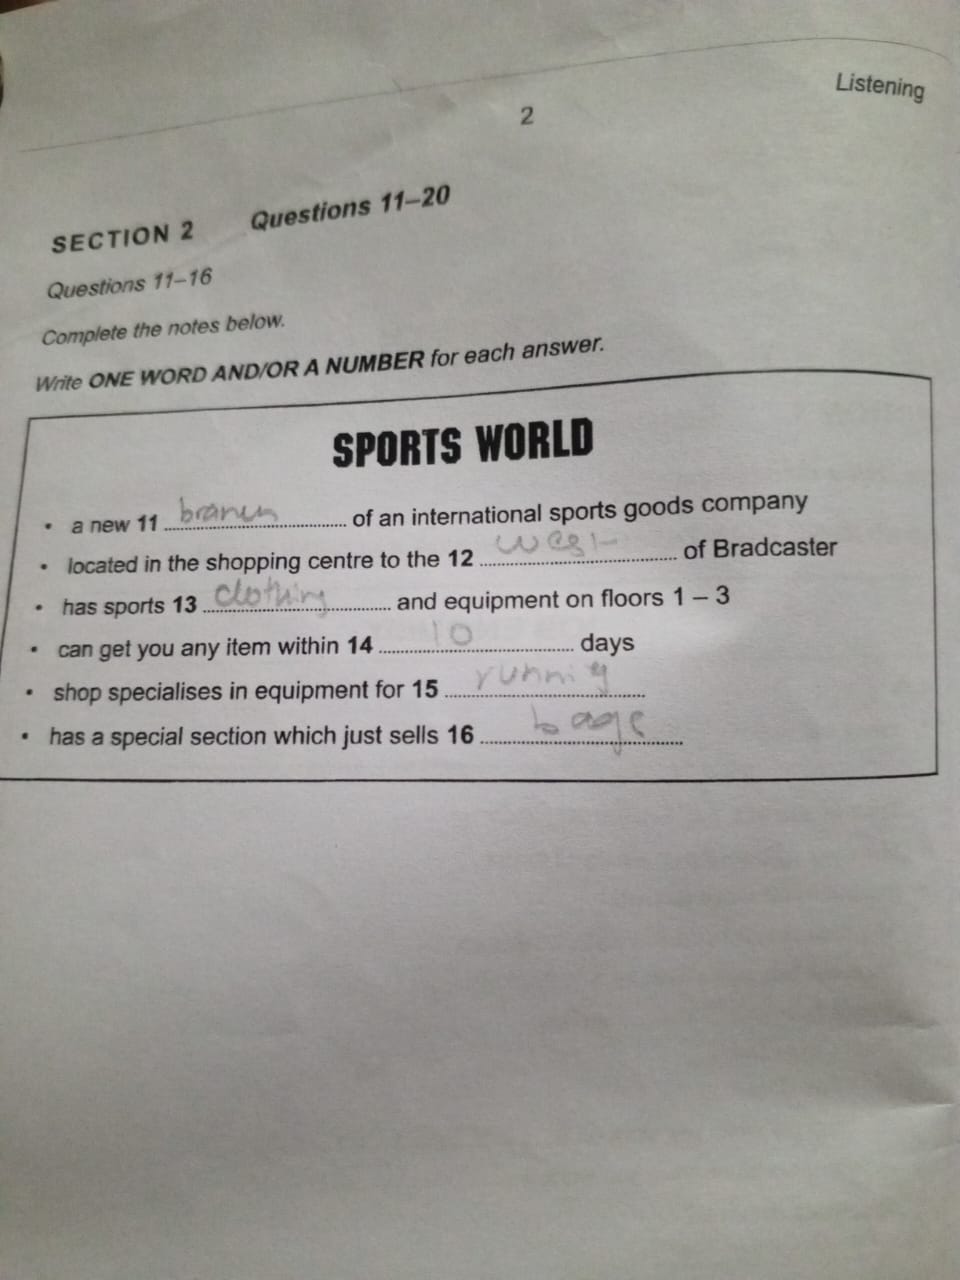 Listening
2
SECTION 2 Questions 11–20
Questions 11–16
Complete the notes below.
Write ONE WORD AND/OR A NUMBER for each answer.
SPORTS WORLD
• a new 11 branch of an international sports goods company
• located in the shopping centre to the 12 west of Bradcaster
• has sports 13 clothing and equipment on floors 1 – 3
• can get you any item within 14 10 days
• shop specialises in equipment for 15 running
• has a special section which just sells 16 bags